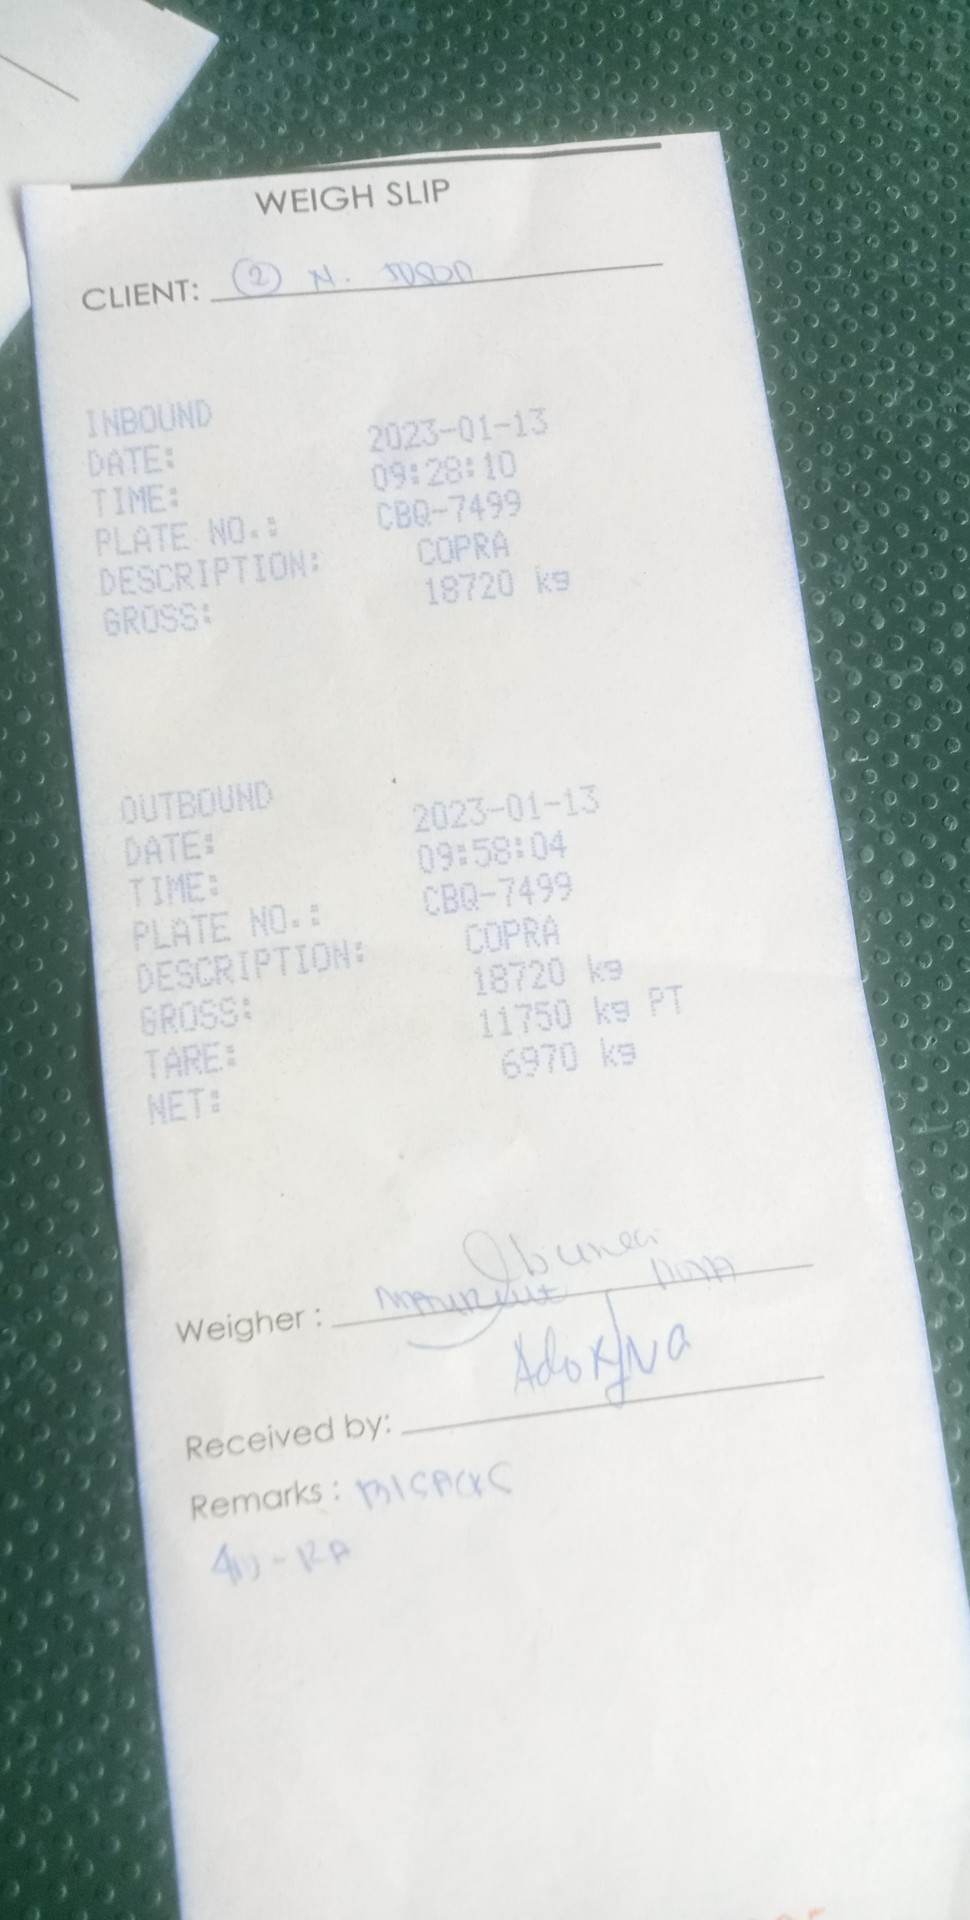 WEIGH SLIP
CLIENT: (2) N.
INBOUND
DATE: 2023-01-13
TIME: 09:28:10
PLATE NO.: CBQ-7499
DESCRIPTION: COPRA
GROSS: 18720 kg
OUTBOUND
DATE: 2023-01-13
TIME: 09:58:04
PLATE NO.: CBQ-7499
DESCRIPTION: COPRA
GROSS: 18720 kg
TARE: 11750 kg PT
NET: 6970 kg
Weigher:
Received by:
Remarks: